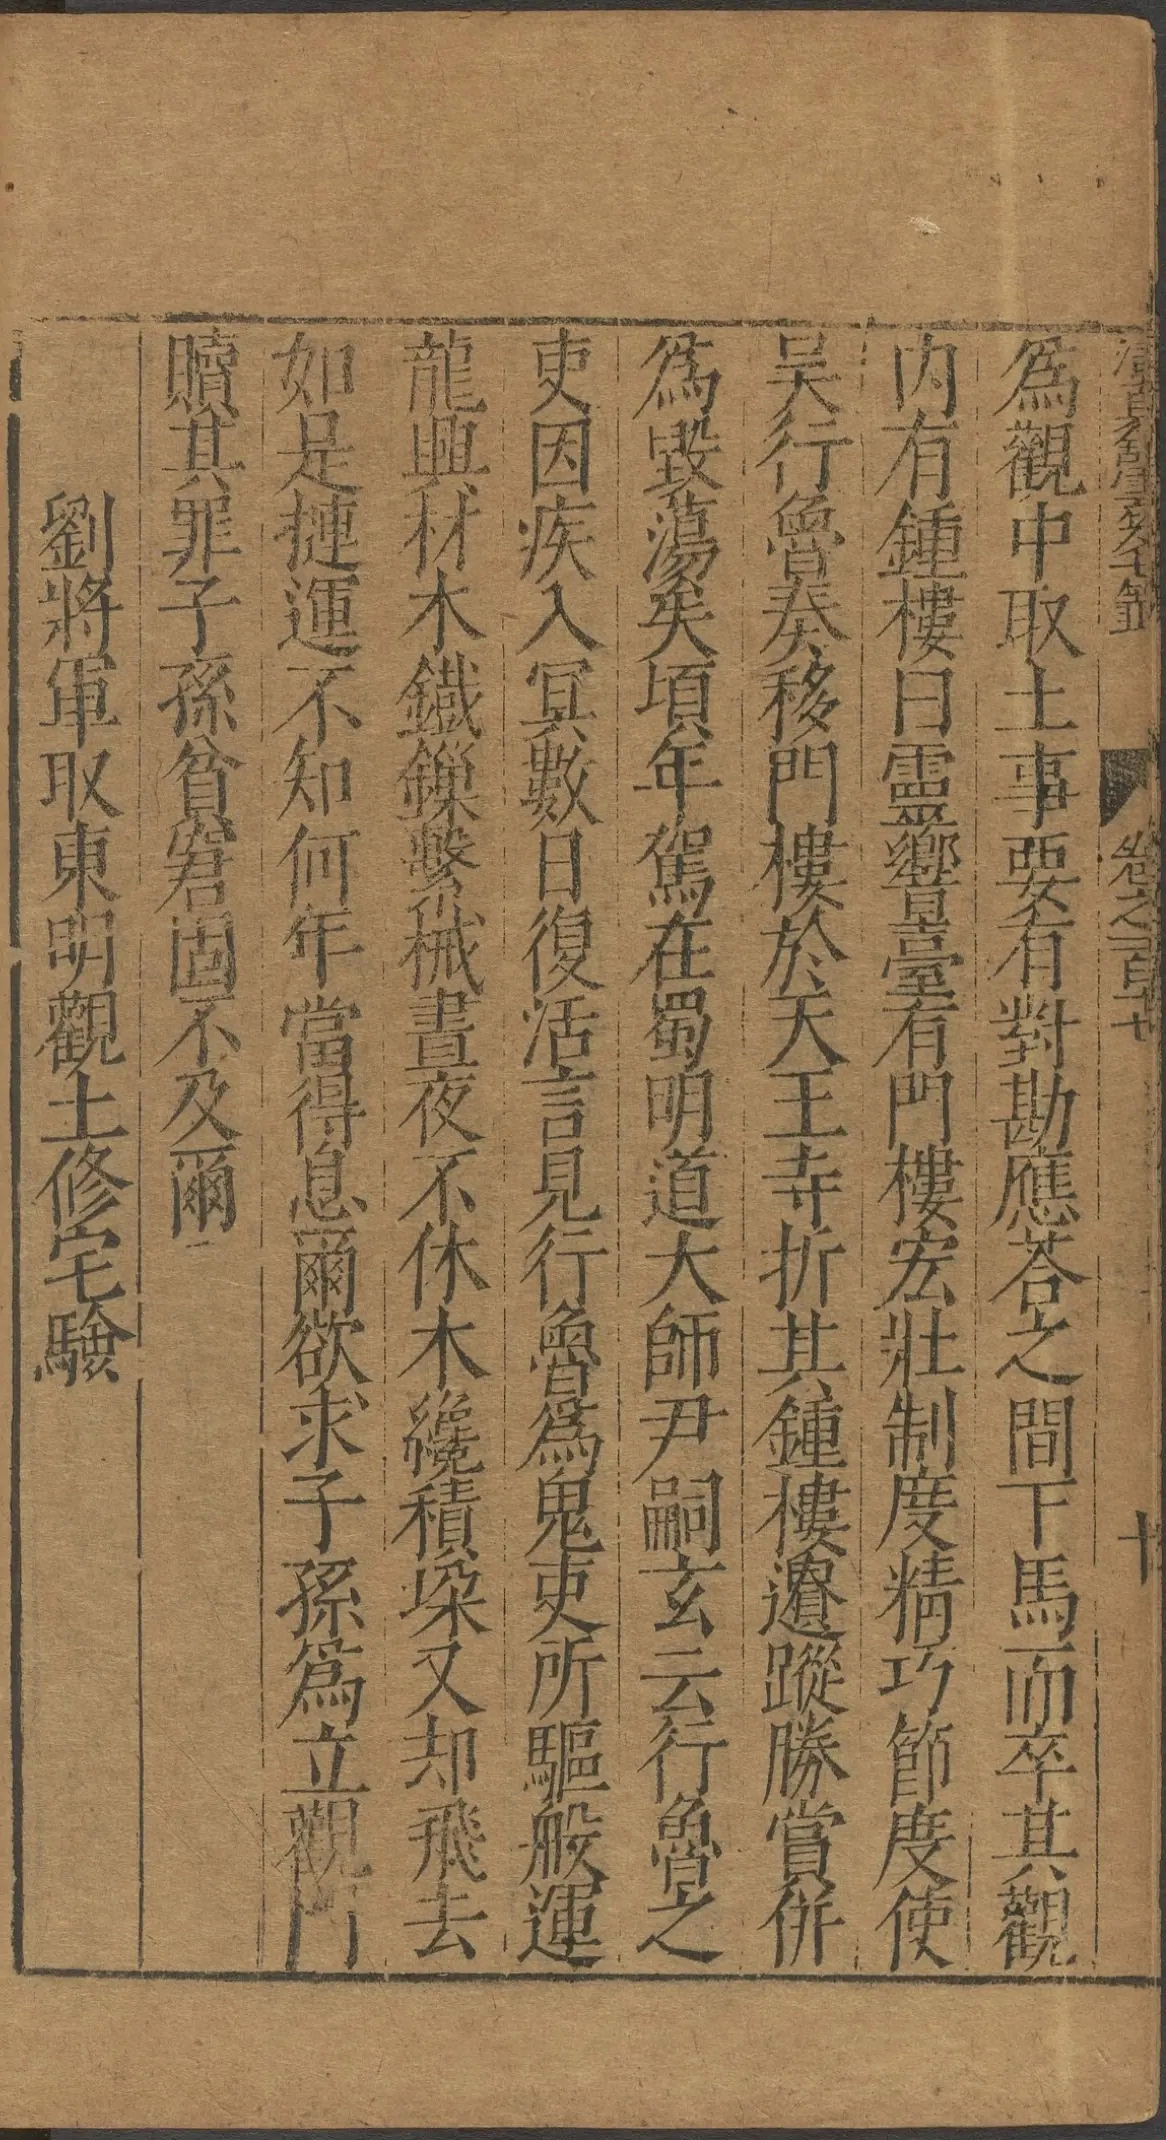 卷之一百廿
十
為觀中取土事要有對勘應荅之間下馬而卒其觀
内有鍾樓曰靈響臺有門樓宏壯制度精巧節度使
吴行魯奏移門樓於天王寺折其鍾樓遺蹤勝賞併
為毀蕩矣頃年駕在蜀明道大師尹嗣玄云行魯之
吏因疾入冥數日復活言見行魯為鬼吏所驅般運
龍興材木鐵鏁繫械晝夜不休木纔積垛又却飛去
如是捷運不知何年當得息爾欲求子孫為立觀門
贖其罪子孫貧窘固不及爾
劉將軍取東明觀土修宅驗